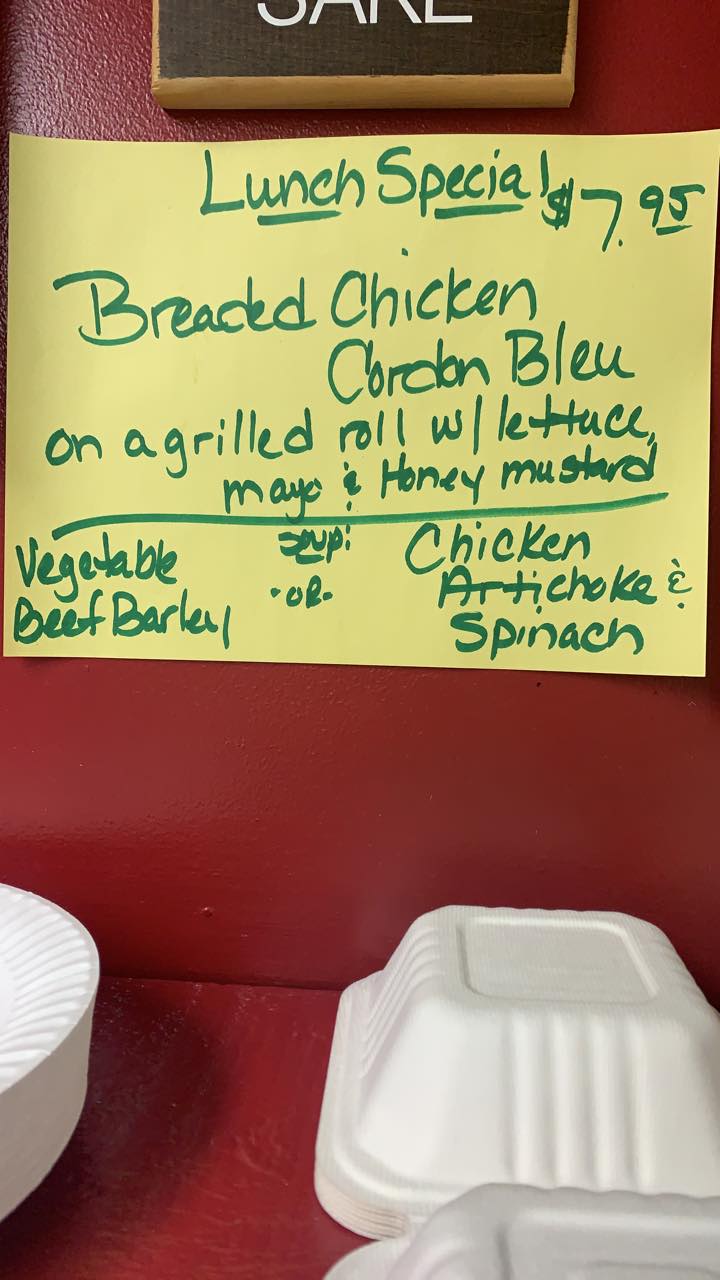 Lunch Special $7.95
Breaded Chicken
Cordon Bleu
on a grilled roll w/ lettuce,
mayo & Honey mustard
Soup:
Vegetable
Beef Barley
·OR·
Chicken
Artichoke &
Spinach